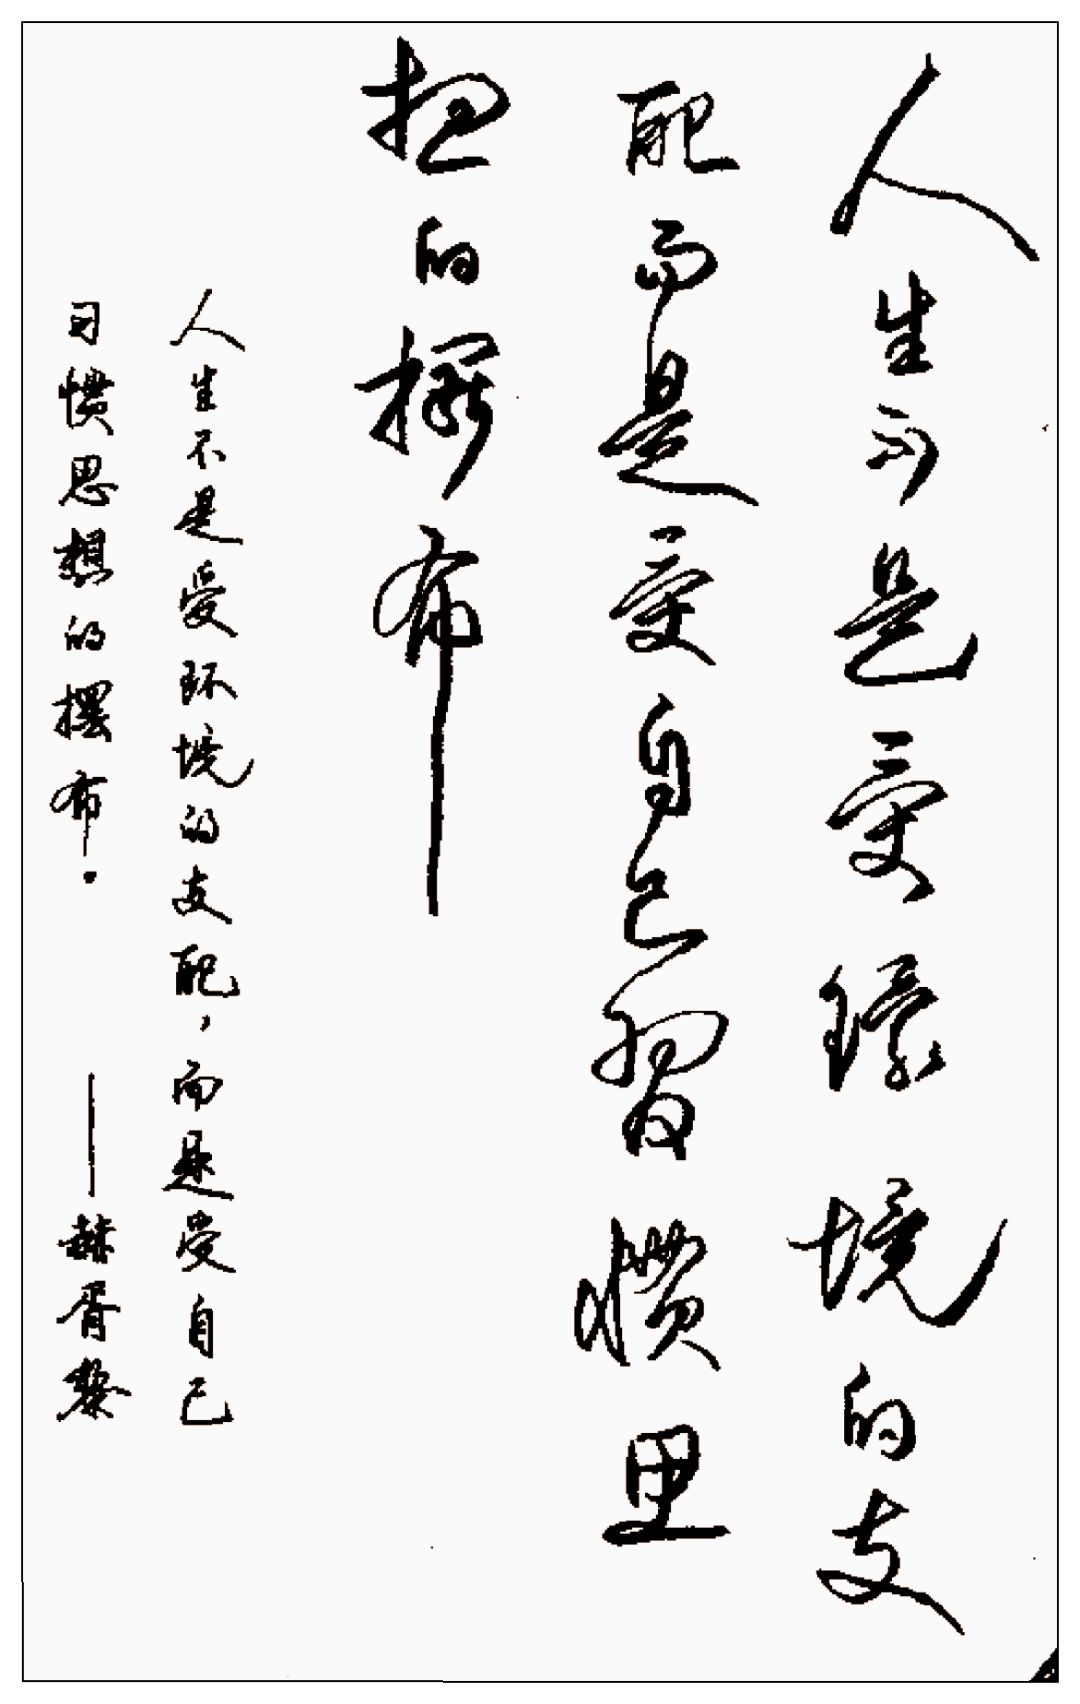 人生不是受環境的支
配而是受自己習慣思
想的擺布
人生不是受环境的支配，而是受自己
习惯思想的摆布。——赫胥黎